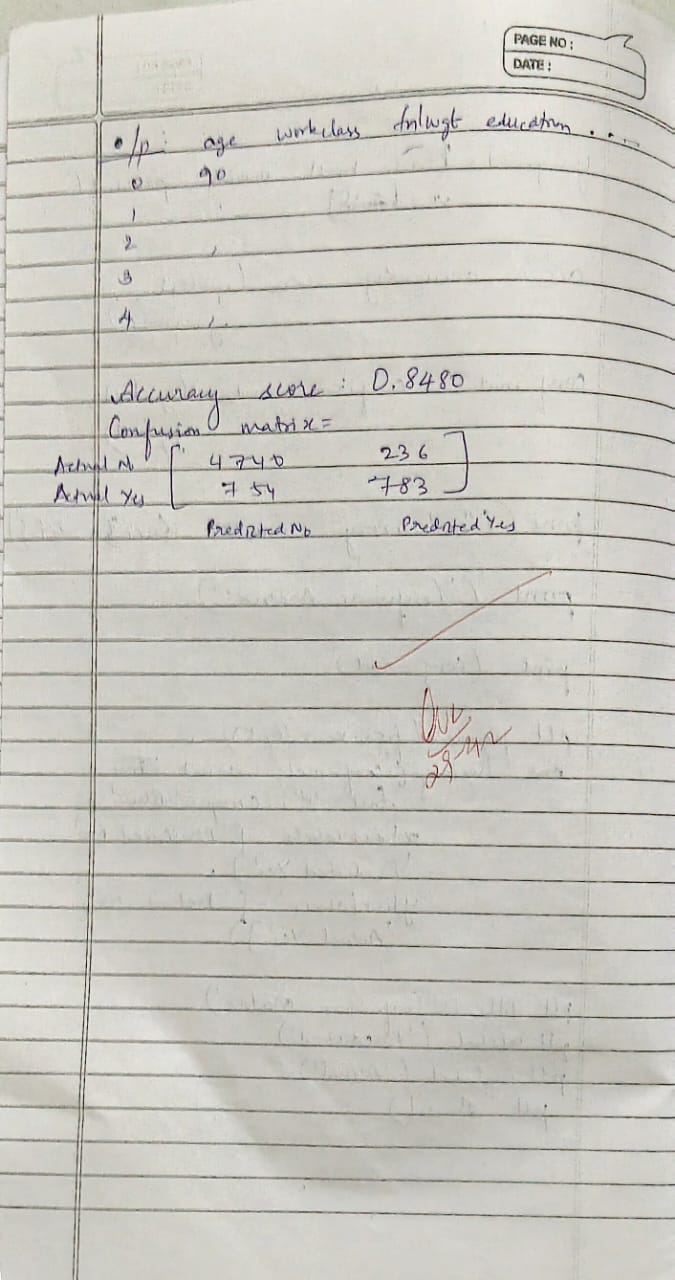 PAGE NO :
DATE :
o/p: age workclass fnlwgt education ....
0 90
1
2 ,
3
4 ,.
Accuracy score : 0.8480
Confusion matrix =
Actual No [ 4740 236 ]
Actual Yes [ 754 783 ]
Predicted No Predicted Yes